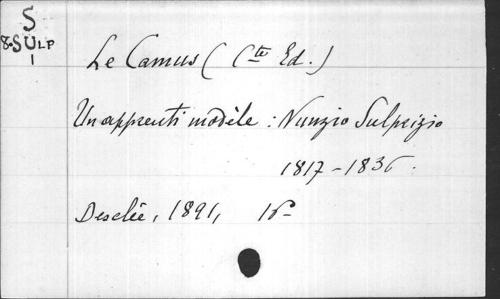 S
8.SULP
1
Le Camus (Cte Ed.)
Un apprenti modèle : Nunzio Sulprizio
1817-1836.
Desclée, 1891, 16º